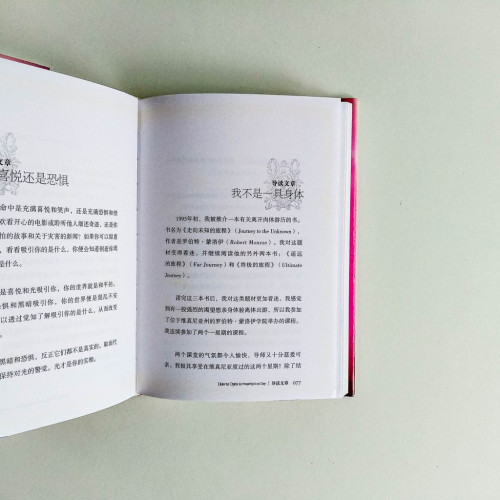 文章
喜悦还是恐惧
命中是充满喜悦和笑声，还是充满恐惧和愤
欢看开心的电影或聆听他人描述奇迹，还是
怕的故事和关于灾害的新闻？如果你可以愿意
，看看吸引你的是什么，你便会知道创造你周
是什么。
是喜悦和光吸引你，你的世界就是和平的，
惧和黑暗吸引你，你的世界便是混乱不安
以透过觉知了解吸引你的是什么，从而改变
黑暗和恐惧，反正它们都不是真实的，敲敲代
保持对光的警觉，光才是你的实相。
导读文章
我不是一具身体
1995年初，我被推介一本有关离开肉体游历的书，
书名为《走向未知的旅程》（Journey to the Unknown），
作者是罗伯特·蒙洛伊（Robert Monroe）。我对这题
材变得着迷，并继续阅读他的另外两本书：《遥远
的旅程》（Far Journey）和《终极的旅程》（Ultimate
Journey）。
诺完这三本书后，我对这类题材更加着迷，我感到
有一股强烈的渴望想亲身体验离体出游，所以我参加
了位于维真尼亚州的罗伯特·蒙洛伊学院举办的课程。
我连续参加了两个一星期的课程。
两个课堂的气氛都令人愉快，导师又十分慈爱可
亲，我极其享受在维真尼亚度过的这两个星期？除了结
导读文章 077